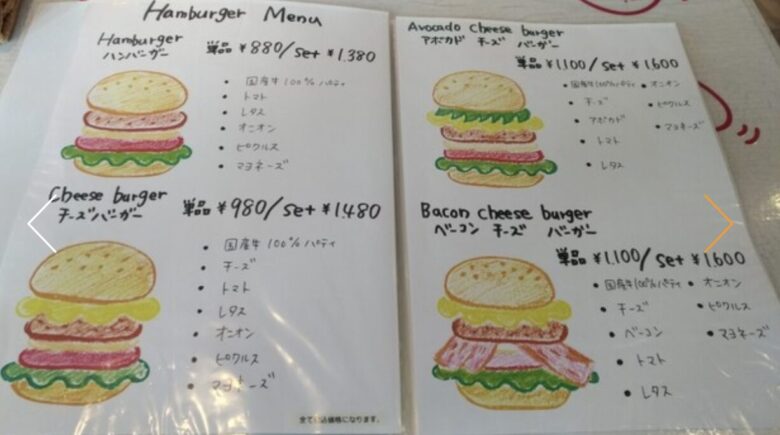 Hamburger Menu
Hamburger
ハンバーガー
単品 ¥880/set ¥1,380
• 国産牛100%パティ
• トマト
• レタス
• オニオン
• ピクルス
• マヨネーズ
Cheese burger
チーズバーガー
単品 ¥980/set ¥1,480
• 国産牛100%パティ
• チーズ
• トマト
• レタス
• オニオン
• ピクルス
• マヨネーズ
全て税込価格になります。
Avocado cheese burger
アボカド チーズ バーガー
単品 ¥1,100/set ¥1,600
• 国産牛100%パティ
• チーズ
• アボカド
• トマト
• レタス
• オニオン
• ピクルス
• マヨネーズ
Bacon cheese burger
ベーコン チーズ バーガー
単品 ¥1,100/set ¥1,600
• 国産牛100%パティ
• チーズ
• ベーコン
• トマト
• レタス
• オニオン
• ピクルス
• マヨネーズ